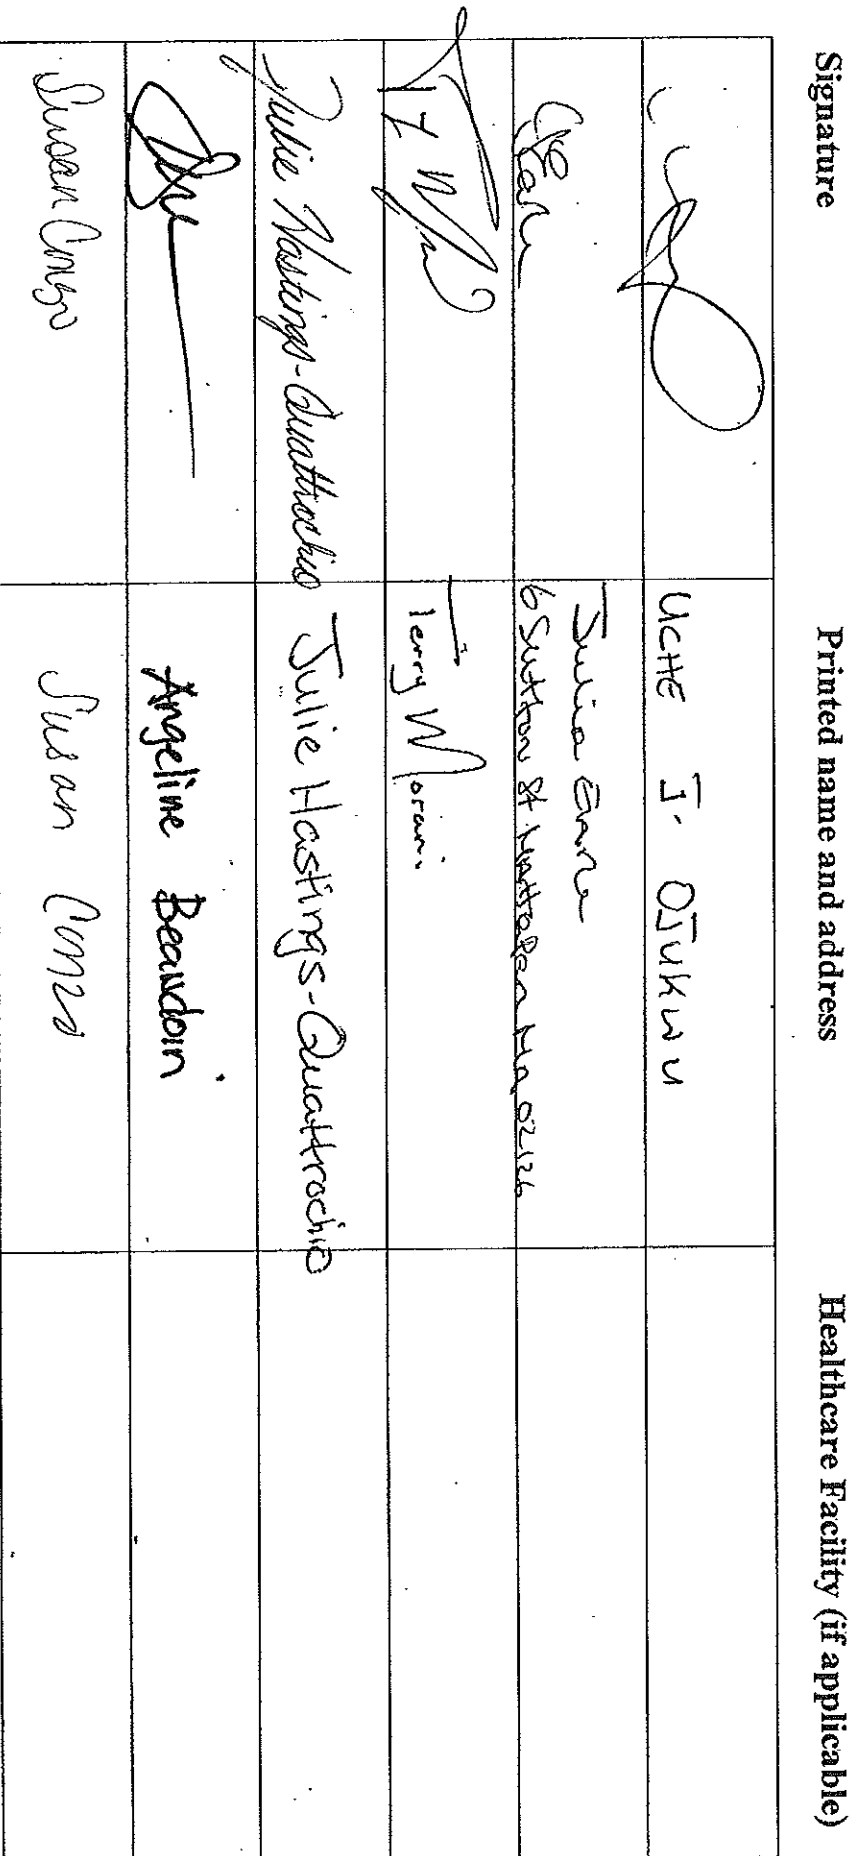 Signature Printed name and address Healthcare Facility (if applicable)
UCHE I. OJUKWU
Julia Earle
6 Sutton St. Mattapan Ma 02126
Terry Morani
Julie Hastings-Quattrochio Julie Hastings-Quattrochio
Angeline Beaudoin
Susan Conzo Susan Conzo